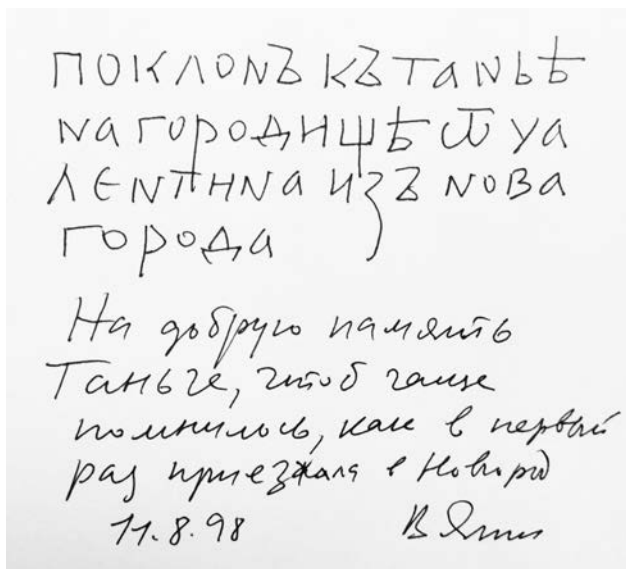 ПОКЛОНЪ КЪ ТАНЬѢ
НА ГОРОДИЩѢ Ѿ УА
ЛЄНТИНА ИЗЪ НОВА
ГОРОДА
На добрую память
Таньче, чтоб чаще
помнилось, как в первый
раз приезжала в Новгород
11.8.98 В Янин